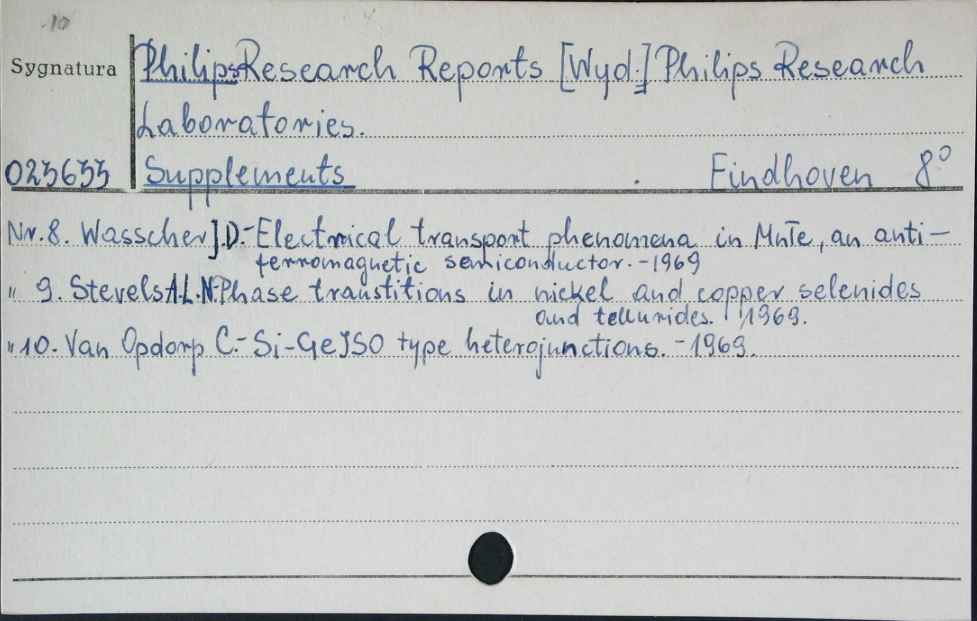 10
Sygnatura Philips Research Reports [Wyd.] Philips Research
Laboratories.
023633 Supplements . Eindhoven 8°
Nr. 8. Wasscher J.D.- Electrical transport phenomena in MnTe, an anti-
ferromagnetic semiconductor. - 1969
" 9. Stevels A.L.N.- Phase transtitions in nickel and copper selenides
and tellurides. 1969.
" 10. Van Opdorp C.- Si-Ge JSO type heterojunctions. - 1969.